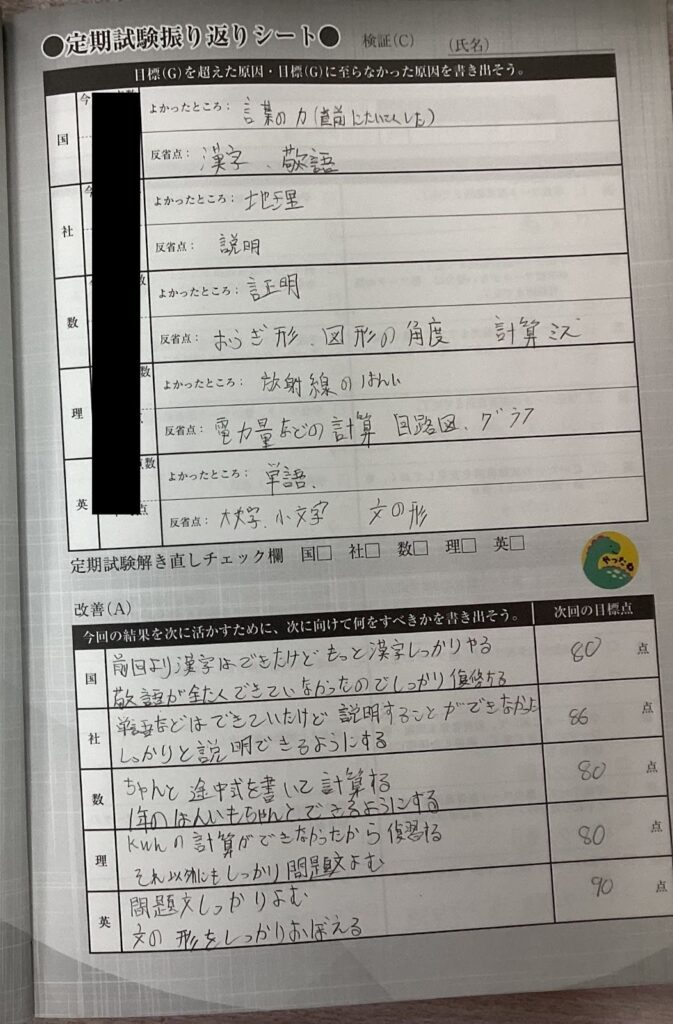 ●定期試験振り返りシート● 検証(C) (氏名)
目標(G)を超えた原因・目標(G)に至らなかった原因を書き出そう。
国 今 点数 よかったところ: 言葉の力(直前に
反省点: 漢字、敬語
社 今 よかったところ: 地理
反省点: 説明
数 数 よかったところ: 証明
反省点: おうぎ形、図形の角度 計算ミス
理 数 よかったところ: 放射線のはんい
反省点: 電力量などの計算 回路図、グラフ
英 点数 よかったところ: 単語、
点 反省点: 大文字、小文字 文の形
定期試験解き直しチェック欄 国□ 社□ 数□ 理□ 英□
やったね
改善(A)
今回の結果を次に活かすために、次に向けて何をすべきかを書き出そう。 次回の目標点
国 前回より漢字はできたけどもっと漢字しっかりやる 80 点
敬語が全たくできていなかったのでしっかり復習する
社 単語などはできていたけど説明することができなかった 86 点
しっかりと説明できるようにする
数 ちゃんと途中式を書いて計算する 80 点
1年のはんいもちゃんとできるようにする
理 kwhの計算ができなかったから復習する 80 点
それ以外にもしっかり問題文よむ
英 問題文しっかりよむ 90 点
文の形をしっかりおぼえる